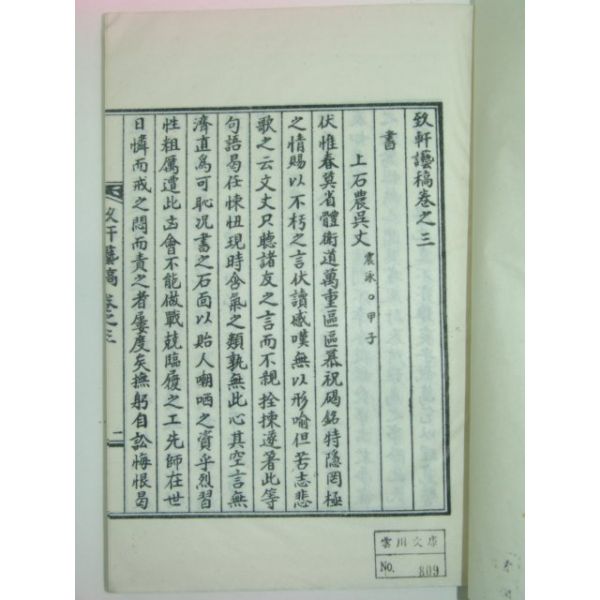 致軒謾稿卷之三
書
上石農吳丈 震泳○甲子
伏惟春蓂省體衛道萬重區區慕祝碣銘特隐罔極
之情賜以不朽之言伏讀感嘆無以形喻但苦志悲
歌之云文丈只聽諸友之言而不親拴揀遂著此等
句語曷任悚忸現時含氣之類孰無此心其空言無
濟直爲可恥况書之石面以貽人嘲哂之資乎烈習
性粗厲遭此凶會不能做戰兢臨履之工先師在世
日憐而戒之悶而責之者屢度矣撫躬自訟悔恨曷
軒 稿 卷之三
雲川文庫
No. 809